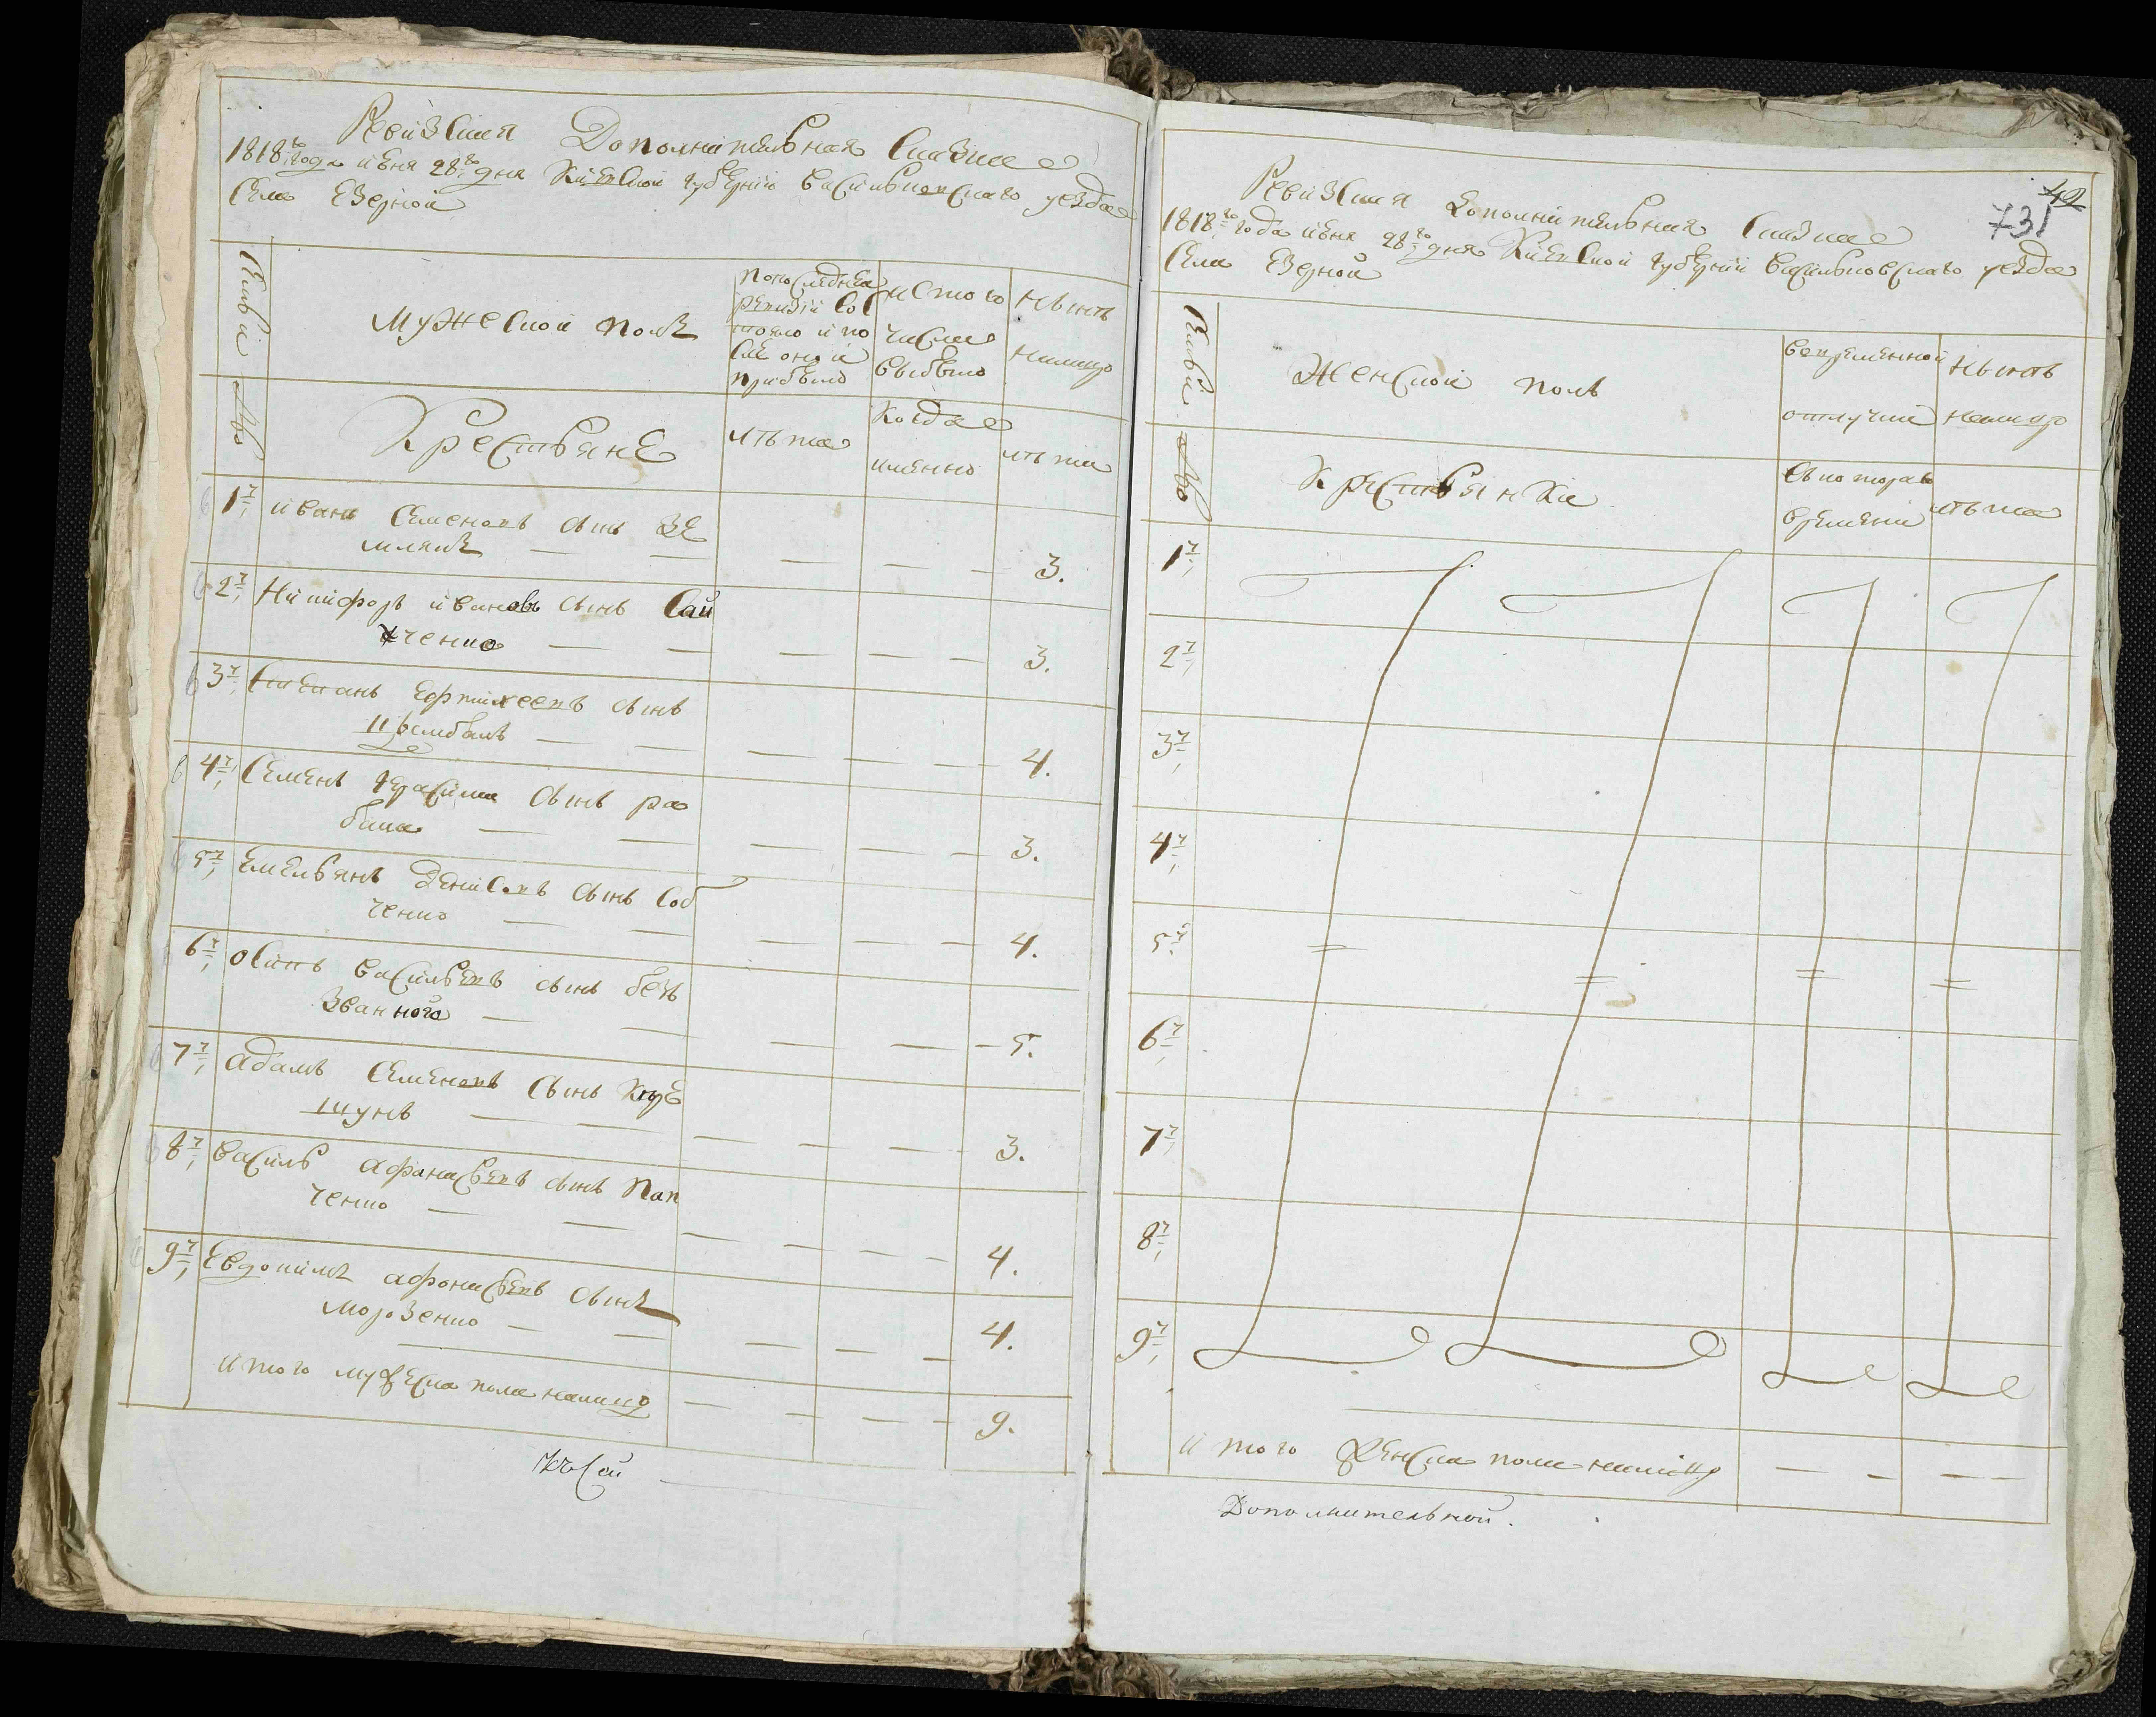 Ревизская Дополнительная сказка
1818го года июня 28го дня Киевской губернии васильковского уезда
Села Езерной
Семьи
Мужеской полъ
по последней
ревизии сос
тояло и по
сле оной
прибыло
ис того
числа
выбыло
Нынъ
налицо
№
Крестьяне
лъта
Когда
именно
лъта
1. иванъ Семеновъ сынъ Зе
млякъ — — — — — 3.
2. Никифоръ ивановъ сынъ Сай
ченко — — — — — 3.
3. Степанъ Ефтихеевъ сынъ
Цымбалъ — — — — — 4.
4. Семенъ Герасима сынъ ра
бака — — — — — 3.
5. Емельянъ денисовъ сынъ Соб
ченко — — — — — 4.
6. Осипъ васильевъ сынъ безъ
званного — — — — — 5.
7. адамъ Семеновъ сынъ
шунъ — — — — — 3.
8. василь афанасьевъ сынъ Пап
ченко — — — — — 4.
9. Евдокимъ афонасьевъ сынъ
морозенко — — — — — 4.
итого мужеска пола налицо — — — — 9.
Къ Сей
42
731
Ревизская дополнительная сказка
1818го года июня 28го дня Киевской губернии васильковского уезда
Села Езерной
Семьи
Женской полъ
во временной
отлучки
Нынъ
налицо
№
Крестьянки
съ котораго
времени
лъта
1.
2.
3.
4.
5.
6.
7.
8.
9.
и того женска пола налицо — — — —
Дополнительной.